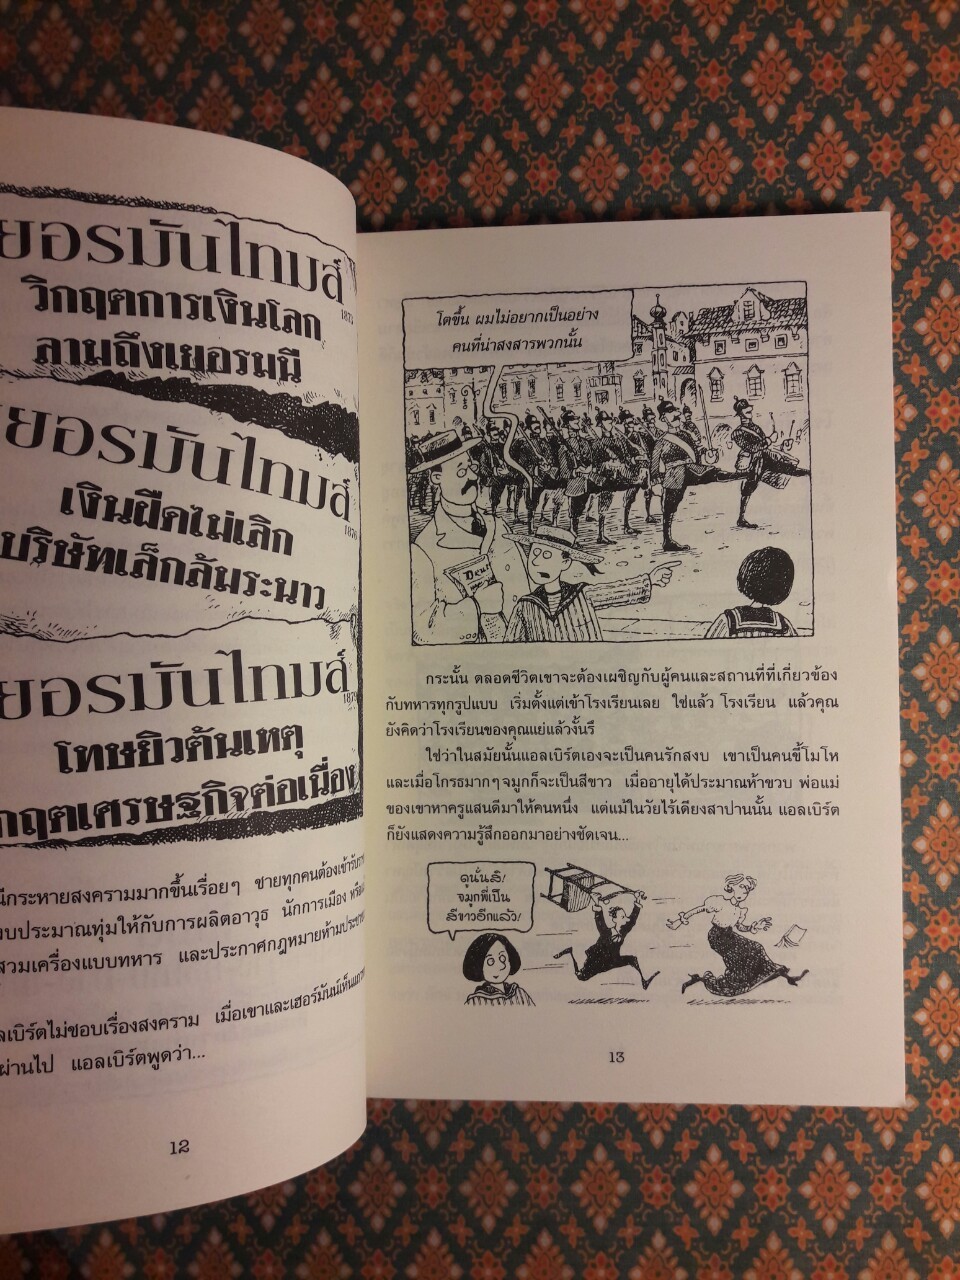 ยอรมันไทมส์
1873
วิกฤตการเงินโลก
ลามถึงเยอรมนี
ยอรมันไทมส์
1876
เงินฝืดไม่เลิก
บริษัทเล็กล้มระนาว
ยอรมันไทมส์
1879
โทษยิวต้นเหตุ
กฤตเศรษฐกิจต่อเนื่อง
นีกระหายสงครามมากขึ้นเรื่อยๆ ชายทุกคนต้องเข้ารับรา
งบประมาณทุ่มให้กับการผลิตอาวุธ นักการเมือง
สวมเครื่องแบบทหาร และประกาศกฎหมายห้ามประชา
ลเบิร์ตไม่ชอบเรื่องสงคราม เมื่อเขาและเฮอร์มันน์เห็น
ผ่านไป แอลเบิร์ตพูดว่า...
12
โตขึ้น ผมไม่อยากเป็นอย่าง
คนที่น่าสงสารพวกนั้น
กระนั้น ตลอดชีวิตเขาจะต้องเผชิญกับผู้คนและสถานที่ที่เกี่ยวข้อง
กับทหารทุกรูปแบบ เริ่มตั้งแต่เข้าโรงเรียนเลย ใช่แล้ว โรงเรียน แล้วคุณ
ยังคิดว่าโรงเรียนของคุณแย่แล้วงั้นรึ
ใช่ว่าในสมัยนั้นแอลเบิร์ตเองจะเป็นคนรักสงบ เขาเป็นคนขี้โมโห
และเมื่อโกรธมากๆ จมูกก็จะเป็นสีขาว เมื่ออายุได้ประมาณห้าขวบ พ่อแม่
ของเขาหาครูแสนดีมาให้คนหนึ่ง แต่แม้ในวัยไร้เดียงสาปานนั้น แอลเบิร์ต
ก็ยังแสดงความรู้สึกออกมาอย่างชัดเจน...
ดูนั่นสิ!
จมูกพี่เป็น
สีขาวอีกแล้ว!
13